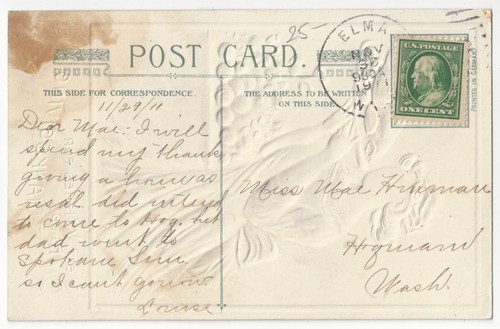 25-
POST CARD.
ELMA
NOV
1911
U.S. POSTAGE
ONE CENT
PRINTED IN GERMANY
THIS SIDE FOR CORRESPONDENCE.
THE ADDRESS TO BE WRITTEN
ON THIS SIDE
11/29/11
Dear Mae:- I will
spend my thanks
giving a home as
usal did intend
to come to Hoq. but
dad went to
Spokane Sun
so I can't go now
Louise
Miss Mae
Hoquiam
Wash.